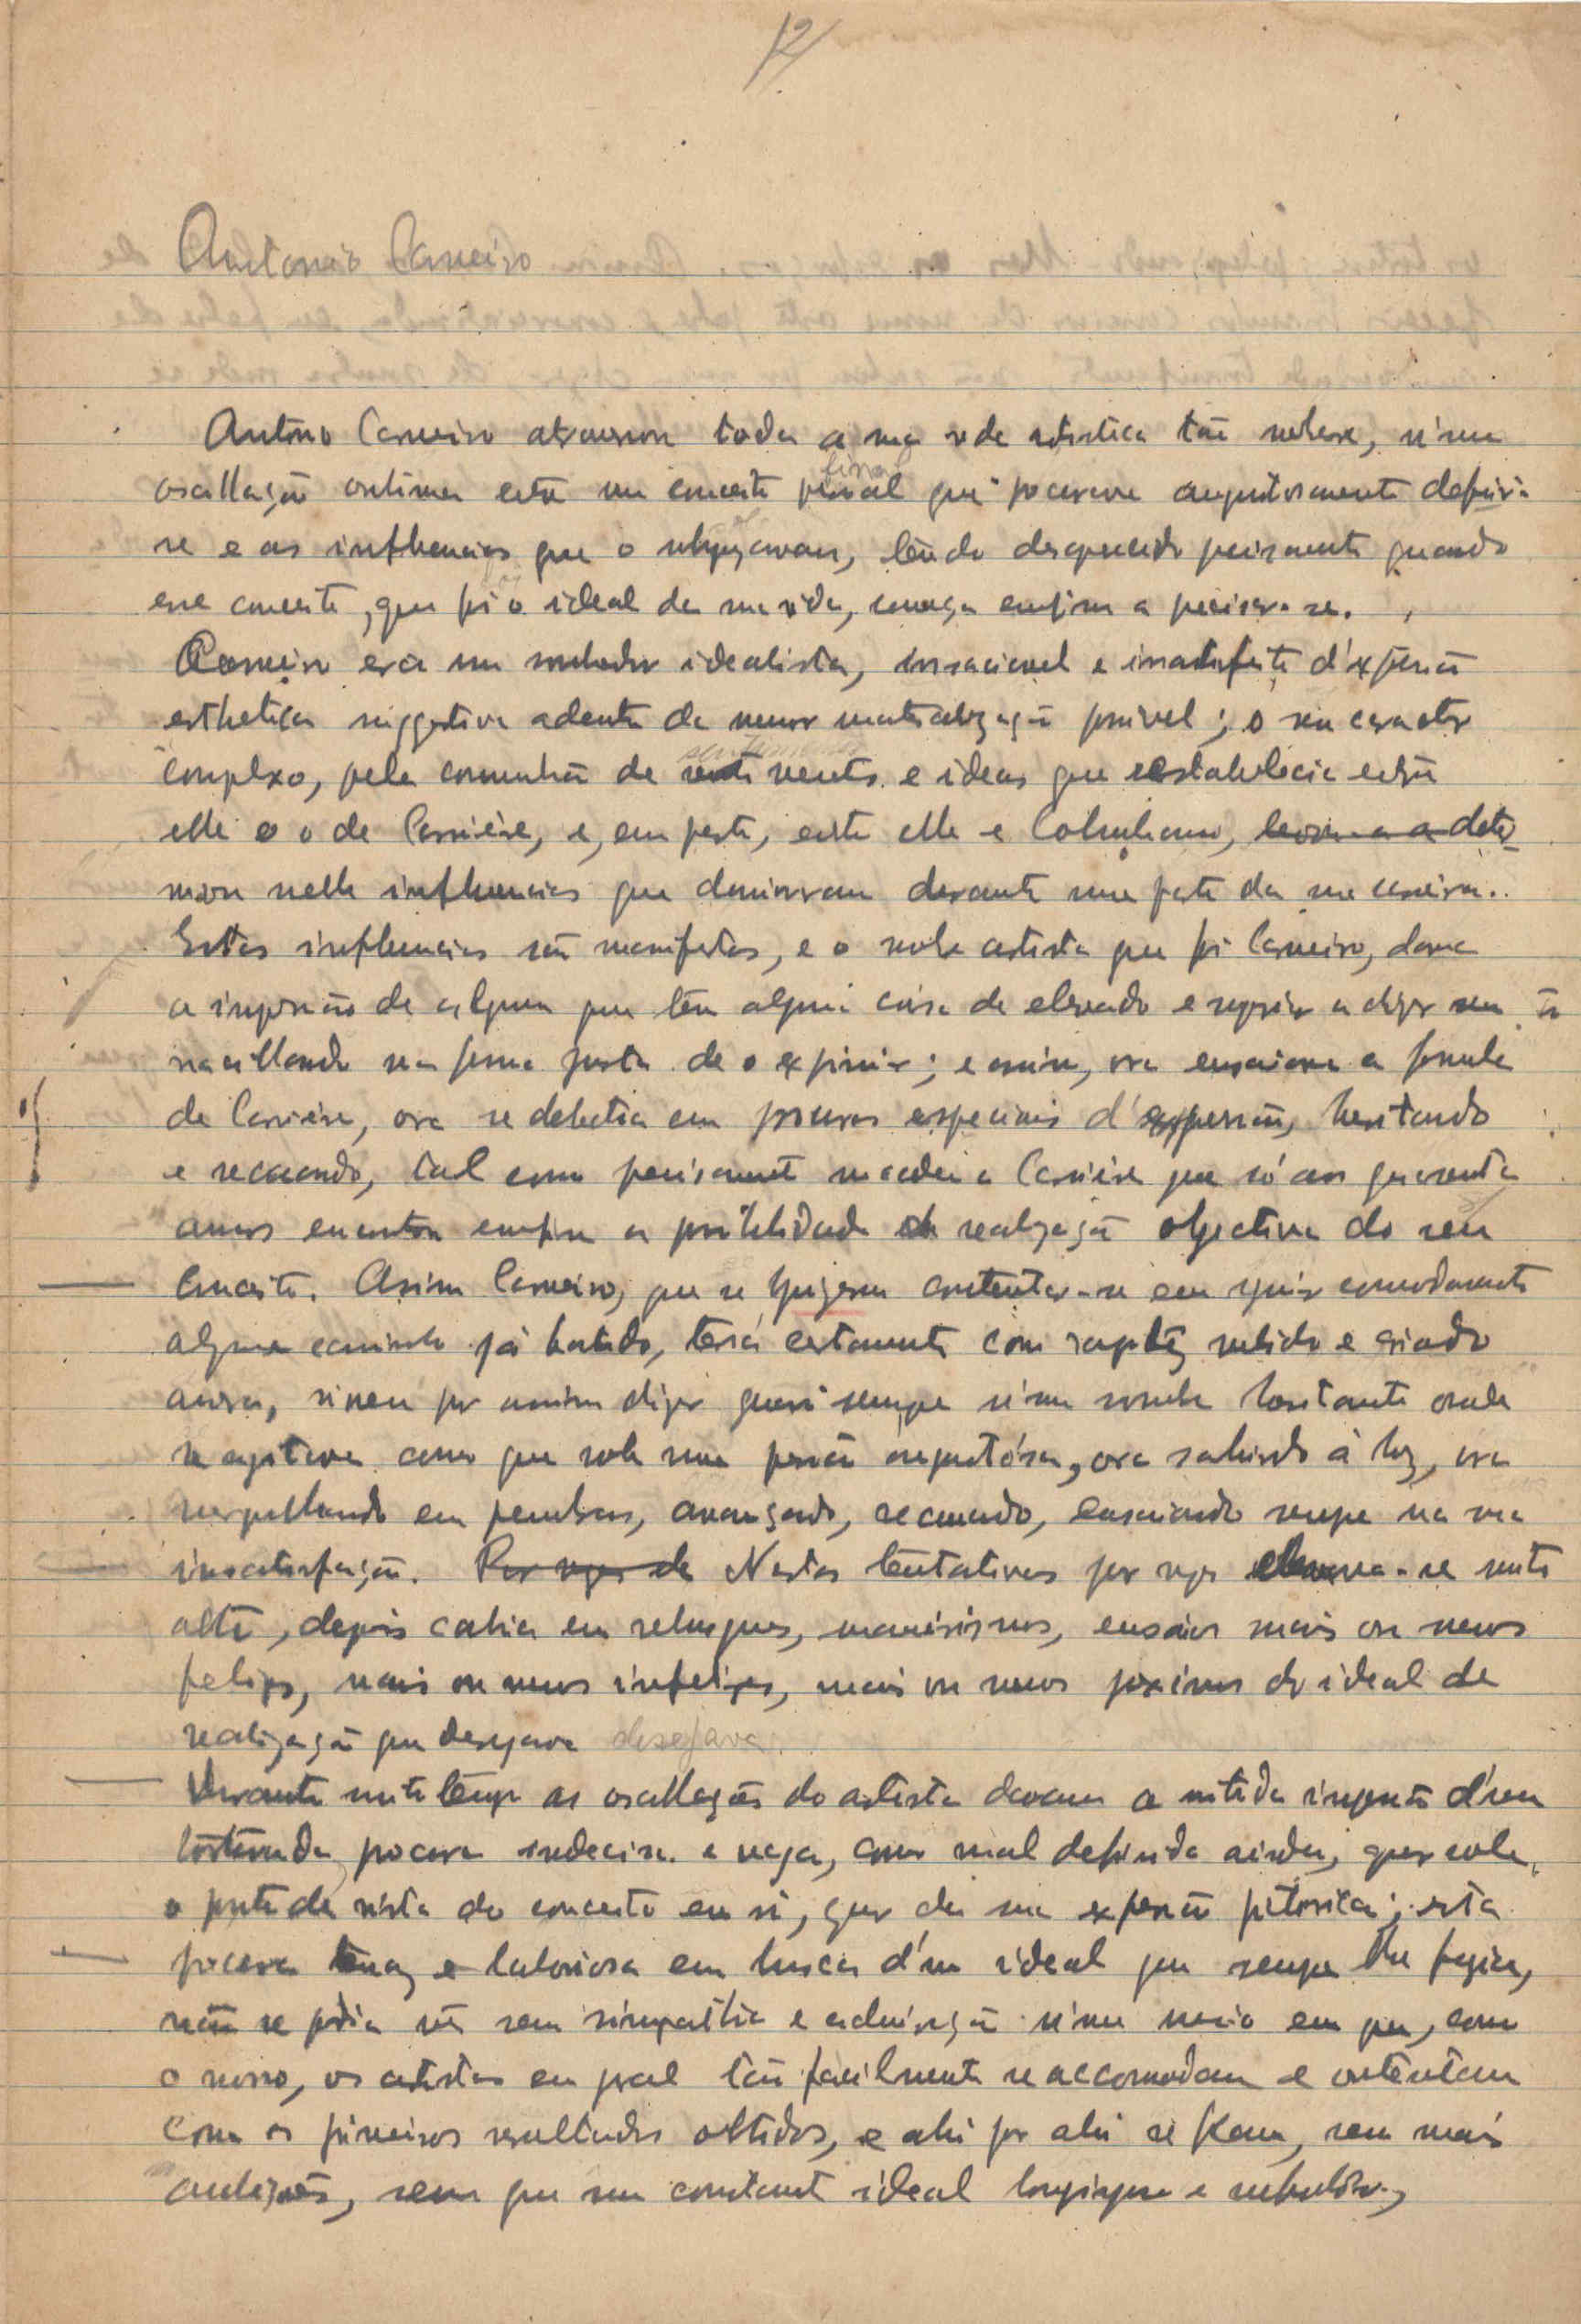 12
Antonio Carneiro
Antonio Carneiro atravessou toda a sua vida artistica tão nobre, n'uma
final
oscillação continua entre um conceito pessoal que procurava angustiosamente definir-
se e as influencias que o subjugavam, tendo desaparecido precisamente quando
esse conceito, que foi o ideal da sua vida, começa emfim a precisar-se.
Carneiro era um sonhador idealista, insaciavel e insatisfeito d'expressão
esthetica suggestiva a dentro da menor materialização possivel; o seu caracter
sentimentos
complexo, pela comunhão de sentimentos e ideas que estabelecia entre
elle e o de Carrière, e, em parte, entre elle e Columbano, levou-o a deter-
minou nelle influencias que dominaram durante uma parte da sua carreira.
Estas influencias são manifestas, e o nobre artista que foi Carneiro, dava
a impressão de alguem que tem alguma coisa de elevado e superior a dizer
vacillando na forma justa de o exprimir; e assim, ora ensaiava a formula
de Carrière, ora se debatia em processos especiais d'expressão, hesitando
e recuando, tal como precisamente succedeu a Carrière que só aos quarenta
annos encontrou emfim a possibilidade de realização objectiva do seu
conceito. Assim Carneiro, que se quizesse contentar-se em seguir comodamente
algum caminho já batido, teria certamente com rapidez subido e criado
aura, viveu por assim dizer quasi sempre n'um sonho hesitante onde
se agitava como que sob uma pressão angustiósa, ora sahindo á luz, ora
mergulhando em penumbras, avançando, recuando, ensaiando sempre na sua
insatisfação. Por vezes de Nestas tentativas por vezes elevava-se muito
alto, depois cahia em rebusques, maneirismos, ensaios mais ou menos
felizes, mais ou menos infelizes, mais ou menos proximos do ideal de
realização que desejava desejava
Durante muito tempo as oscillações do artista davam a nitida impressão d'uma
torturada procura indecisa e vaga, como mal definida ainda, quer sob
o ponto de vista do conceito em si, quer da sua expressão pitorica; esta
procura tenaz e laboriosa em busca d'um ideal que sempre lhe fugia,
não se podia vêr sem simpathia e admiração n'um meio em que, como
o nosso, os artistas em geral tão facilmente se accomodam e contentam
com os primeiros resultados obtidos, e ahi por ahi se ficam, sem mais
ambições, sem que um constante ideal longinquo e nebuloso,